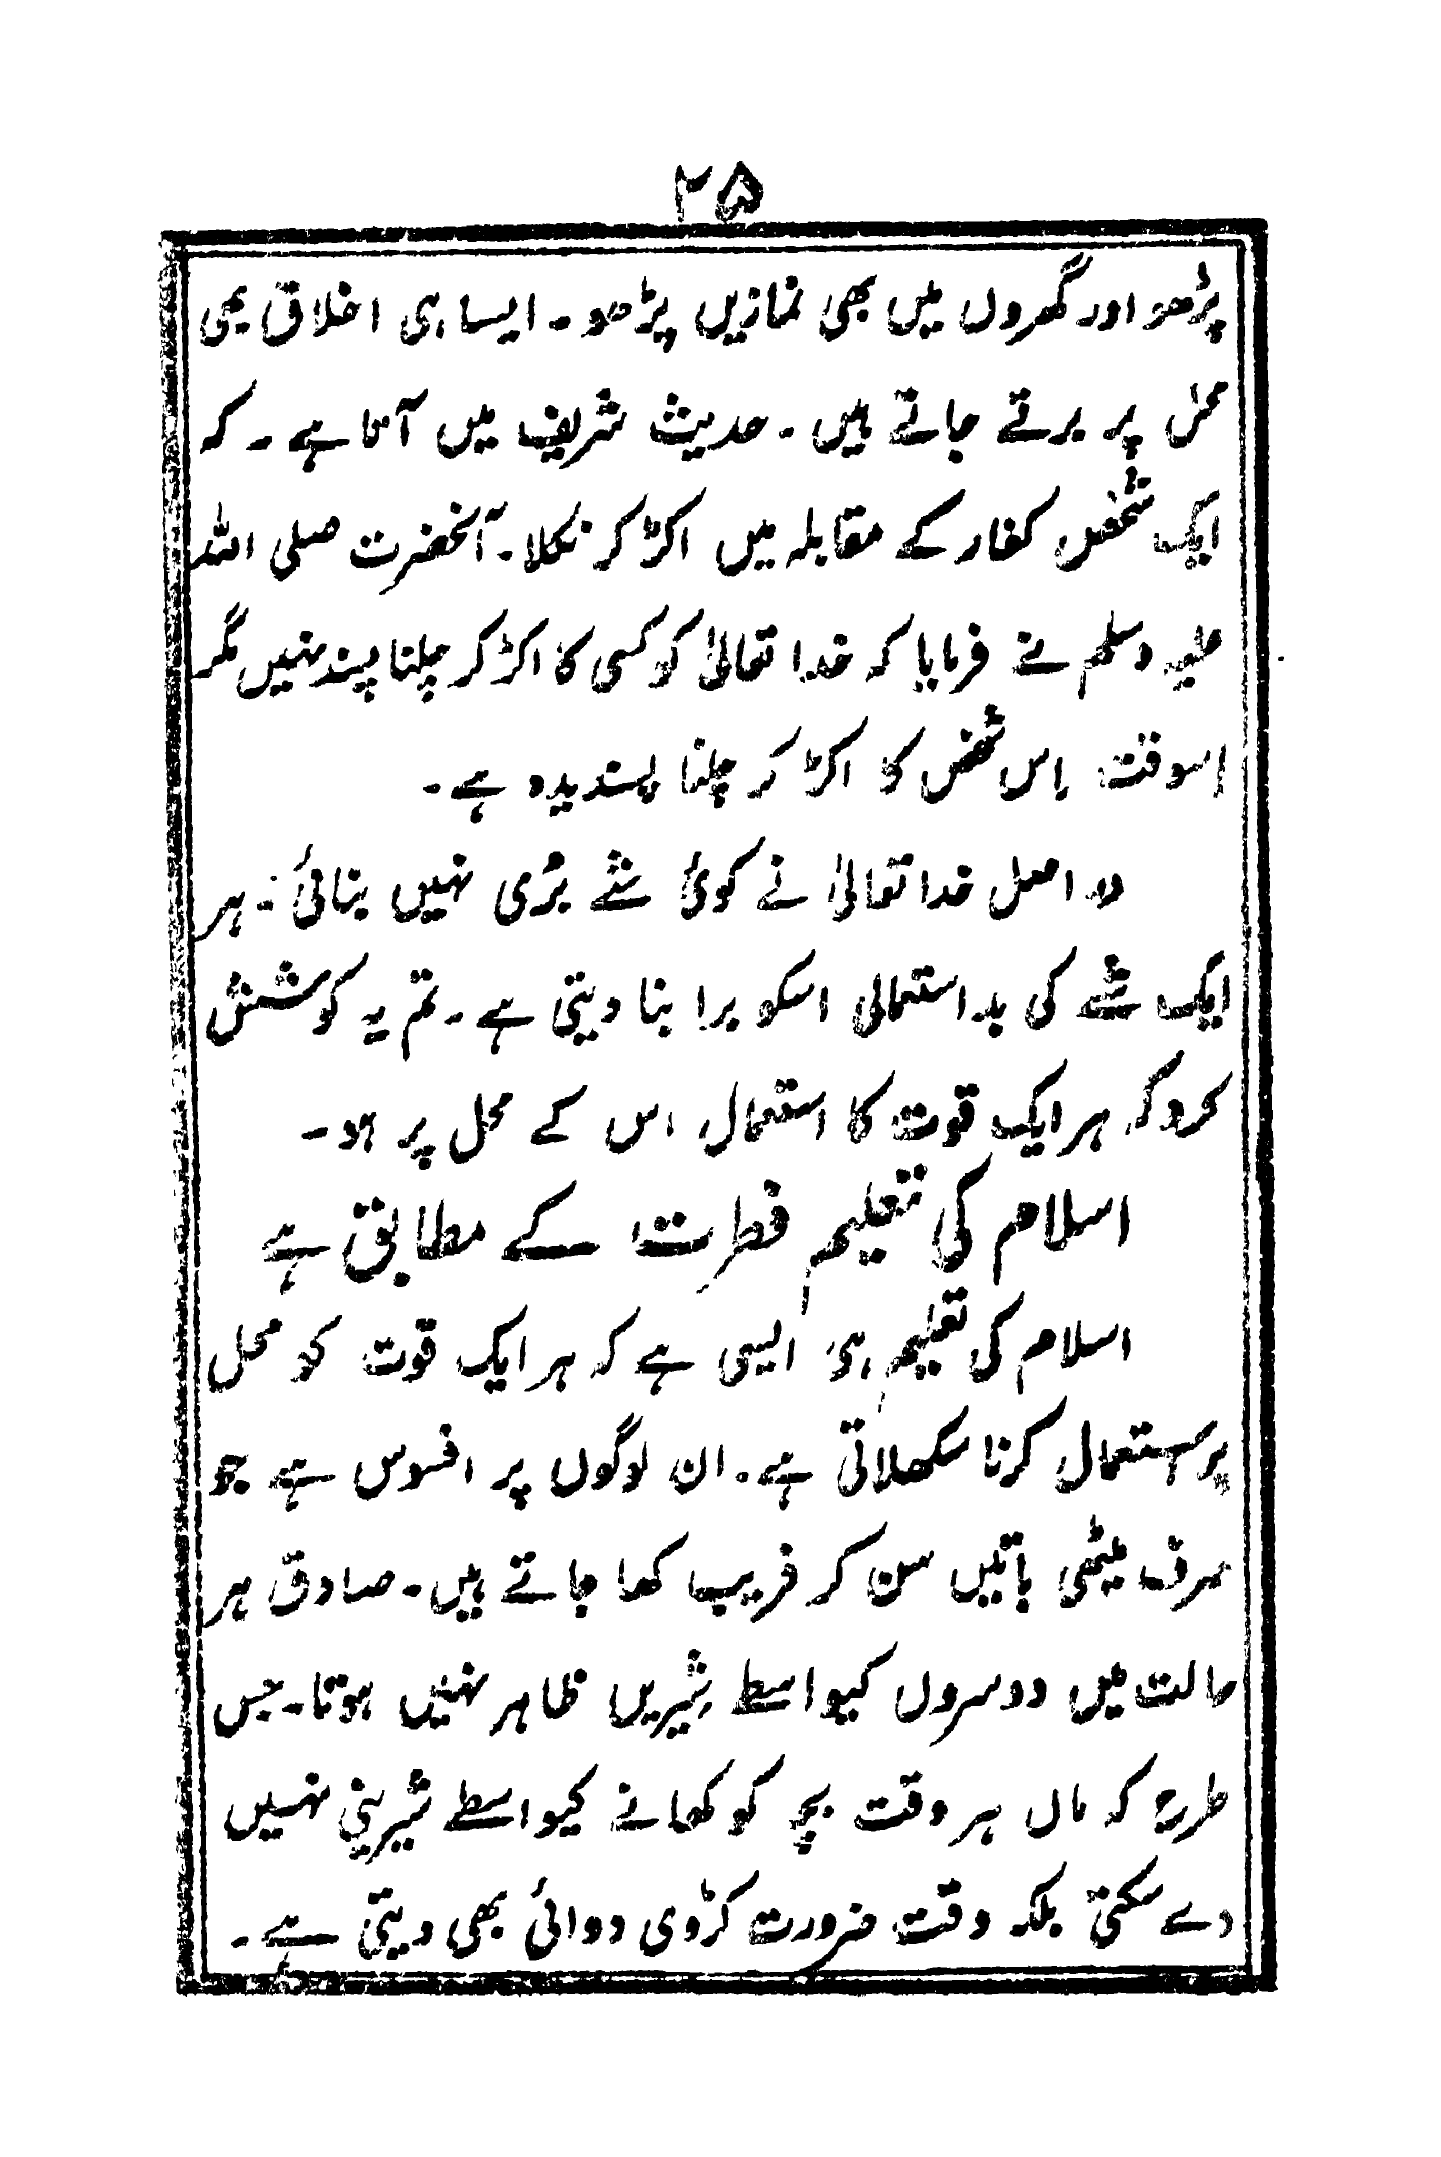 ۲۵
پڑھو اور گھروں میں بھی نمازیں پڑھو۔ ایسا ہی اخلاق بھی
محل پر برتے جاتے ہیں۔ حدیث شریف میں آتا ہے۔ کہ
ایک شخص کفار کے مقابلہ میں اکڑ کر نکلا۔ آنحضرت صلی اللہ
علیہ وسلم نے فرمایا کہ خدا تعالیٰ کو کسی کا اکڑ کر چلنا پسند نہیں مگر
اسوقت اِس شخص کا اکڑ کر چلنا پسندیدہ ہے۔
در اصل خدا تعالیٰ نے کوئی شئے بُری نہیں بنائی۔ ہر
ایک شئے کی بد استعمالی اسکو برا بنا دیتی ہے۔ تم یہ کوشش
کرو کہ ہر ایک قوت کا استعمال اس کے محل پر ہو۔
اسلام کی تعلیم فطرت کے مطابق ہے
اسلام کی تعلیم ہی ایسی ہے کہ ہر ایک قوت کو محل
پر استعمال کرنا سکھلاتی ہے۔ ان لوگوں پر افسوس ہے جو
صرف میٹھی باتیں سن کر فریب کھا جاتے ہیں۔ صادق ہر
حالت میں دوسروں کیواسطے شیریں ظاہر نہیں ہوتا۔ جس
طرح کہ ماں ہر وقت بچہ کو کھانے کیواسطے شیرینی نہیں
دے سکتی بلکہ وقت ضرورت کڑوی دوائی بھی دیتی ہے۔